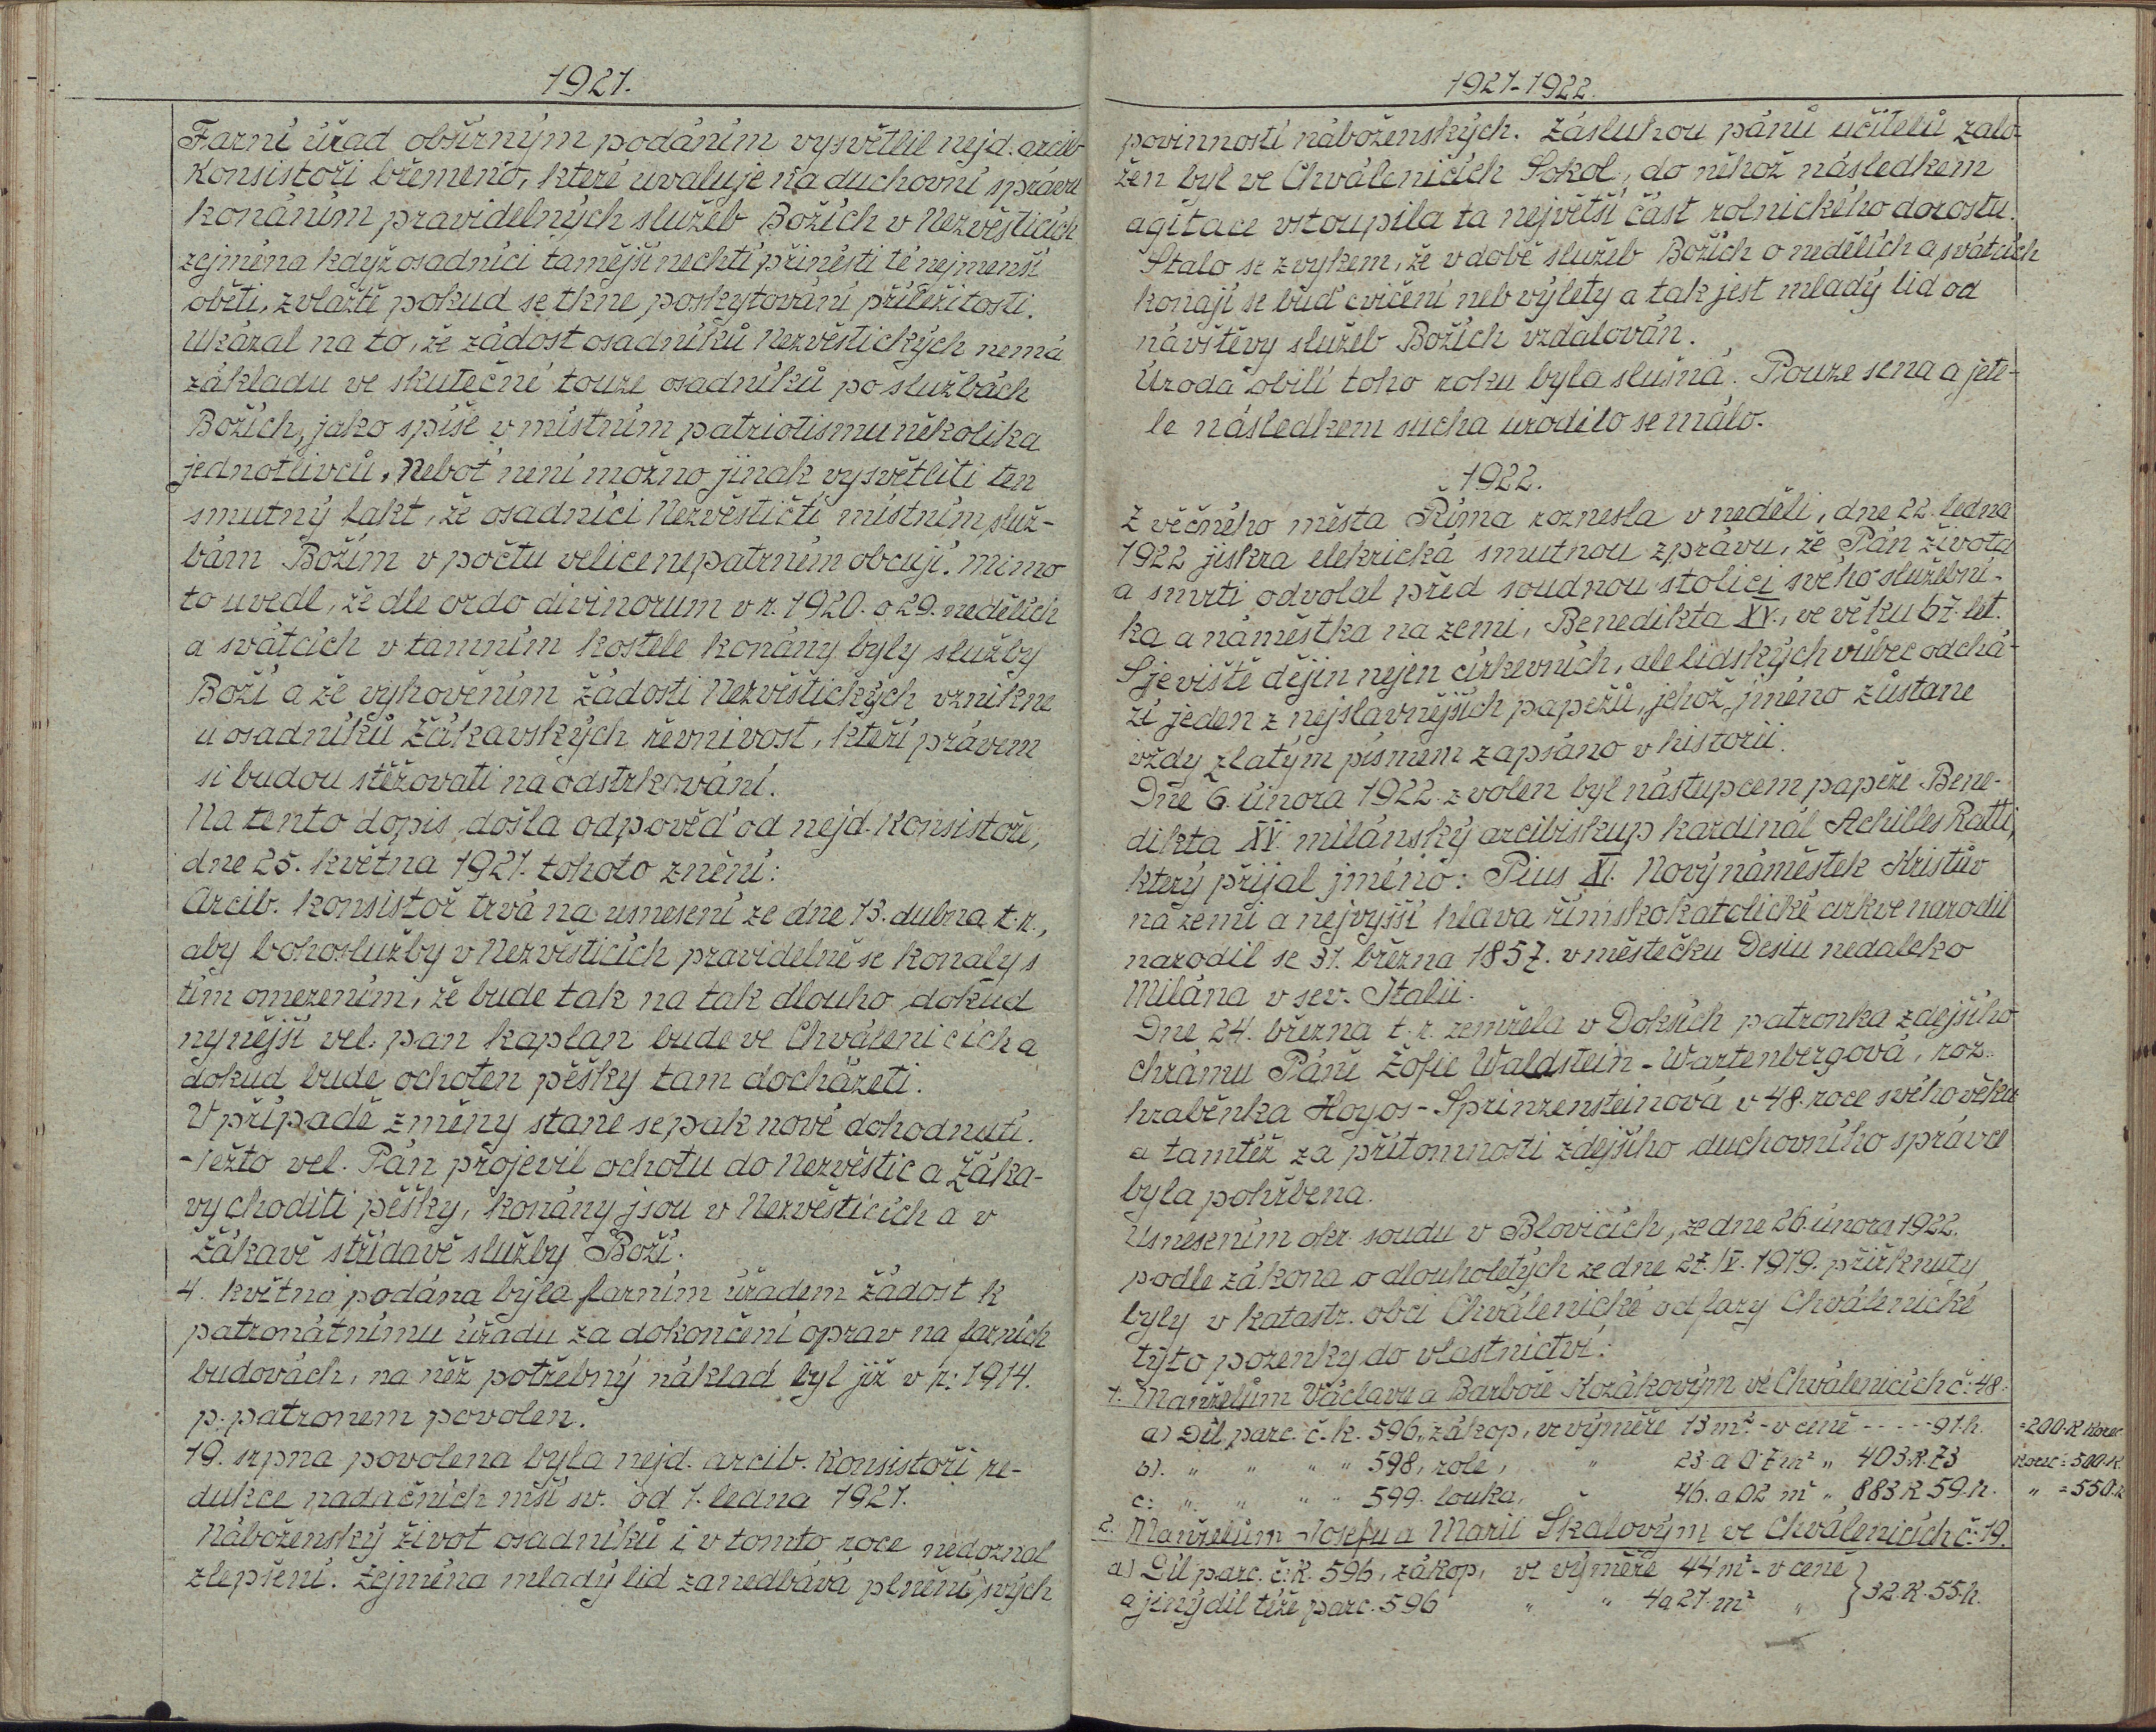 1921.
Farní úřad obšírným podáním vysvětlil nejd. arcib
konsistoři břemeno, které uvaluje na duchovní správu
konáním pravidelných služeb Božích v Nezvěsticích
zejména když osadníci tamější nechtí přinésti té nejmenší
oběti, zvláště pokud se tkne poskytování příležitosti.
Ukázal na to, že žádost osadníků Nezvěstických nemá
základu ve skutečné touze osadníků po službách
Božích, jako spíše v místním patriotismu několika
jednotlivců. Neboť není možno jinak vysvětliti ten
smutný fakt, že osadníci Nezvěstičtí místním služ-
bám Božím v počtu velice nepatrném obcují. Mimo
to uvedl, že dle ordo divinorum v r. 1920. o 29. nedělích
a svátcích v tamním kostele konány byly služby
Boží a že vyhověním žádosti Nezvěstických vznikne
u osadníků Žákavských řevnivost, kteří právem
si budou stěžovati na odstrkování.
Na tento dopis došla odpověď od nejd. konsistoře,
dne 25. května 1921. tohoto znění:
Arcib. konsistoř trvá na usnesení ze dne 13. dubna t. r.,
aby bohoslužby v Nezvěsticích pravidelně se konaly s
tím omezením, že bude tak na tak dlouho dokud
nynější vel. pan kaplan bude ve Chválenicích a
dokud bude ochoten pěšky tam docházeti.
V případě změny stane se pak nové dohodnutí.
-Ježto vel. Pán projevil ochotu do Nezvěstic a Žáka-
vy choditi pěšky, konány jsou v Nezvěsticích a v
Žákavě střídavě služby Boží.
4. května podána byla farním úřadem žádost k
patronátnímu úřadu za dokončení oprav na farních
budovách, na něž potřebný náklad byl již v r: 1914.
p. patronem povolen.
19. srpna povolena byla nejd. arcib. konsistoří re-
dukce nadačních mší sv. od 1. ledna 1921.
Náboženský život osadníků i v tomto roce nedoznal
zlepšení. Zejména mladý lid zanedbává plnění svých
1921-1922.
povinností náboženských. Zásluhou pánů učitelů zalo-
žen byl ve Chválenicích Sokol, do něhož následkem
agitace vstoupila ta největší část rolnického dorostu.
Stalo se zvykem, že v době služeb Božích o nedělích a svátcích
konají se buď cvičení neb výlety a tak jest mladý lid od
návštěvy služeb Božích vzdalován.
Úroda obilí toho roku byla slušná. Pouze sena a jete-
le následkem sucha urodilo se málo.
1922.
Z věčného města Říma roznesla v neděli, dne 22. ledna
1922 jiskra elekrická smutnou zprávu, že Pán života
a smrti odvolal před soudnou stolici svého služební-
ka a náměstka na zemi, Benedikta XV., ve věku 67. let.
S jeviště dějin nejen církevních, ale lidských vůbec odchá-
zí jeden z nejslavnějších papežů, jehož jméno zůstane
vždy zlatým písmem zapsáno v historii.
Dne 6. února 1922. zvolen byl nástupcem papeže Bene-
dikta XV. milánský arcibiskup kardinál Achilles Ratti,
který přijal jméno: Pius XI. Nový náměstek Kristův
na zemi a nejvyšší hlava římskokatolické cirkve narodil
narodil se 31. března 1857. v městečku Desiu nedaleko
Milána v sev. Italii.
Dne 24. března t. r. zemřela v Doksích patronka zdejšího
chrámu Páně Žofie Waldstein-Wartenbergová, roz.
hraběnka Hoyos-Sprinzensteinová v 48. roce svého věku
a tamtéž za přítomnosti zdejšího duchovního správce
byla pohřbena.
Usnesením okr. soudu v Blovicích, ze dne 26. února 1922.
podle zákona o dlouholetých ze dne 27. IV. 1919. přiřknuty
byly v katastr. obci Chválenické od fary Chválenické
tyto pozemky do vlastnictví:
1. Manželům Václavu a Barboře Kozákovým ve Chválenicích č: 48:
a) Díl parc. č. k. 596, zákop, ve výměře 13 m² - v ceně - - - - 91.h. =200.K korec
b). " " " " 598, role, " 23 a 07 m² " 403.K.73 korec = 500.K.
c: " " " " 599. louka, " 46. a 02 m² " 883 K 59.h. " = 550.K
2. Manželům Josefu a Marii Skalovým ve Chválenicích č: 19.
a) Díl parc. č: k. 596, zákop, ve výměře 44 m² - v ceně
a jiný díl téže parc. 596 " " 4a 21 m² " } 32.K.55.h.